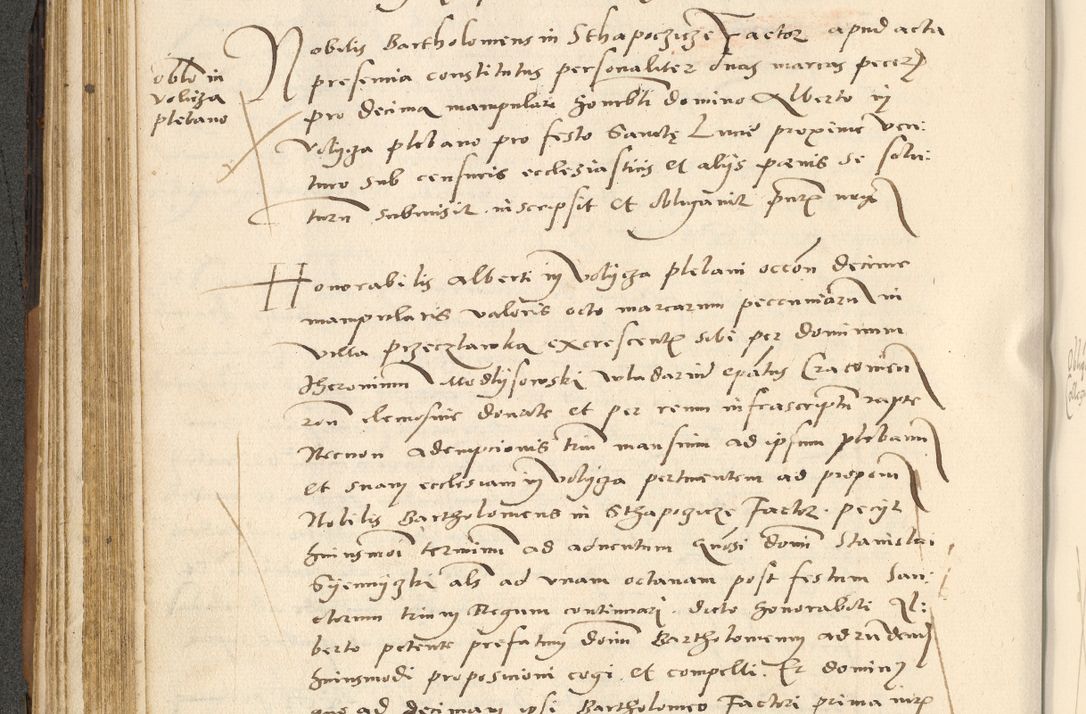 Nobilis Bartholomeus in Sthapoczicze Factor apud acta
oblo in
Voliiza
plebano
presencia constitutus personaliter duas marcas pecer
pro decima manipulari honorabli domino Alberto in
Volyiza plebano pro festo Sanctę Lucie proxime ven:
turo sub censuris ecclesiasticis et alijs poenis se solu:
turum submisit inscripsit et obligavit
Honorabilis Alberti in Volyiza plebani occon decime
manipularis valoris octo marcarum pecuniaru in
villa Przeczlawka excrescentis sibi per dominum
Iheronimum Modlyschowski Vladarium epatus Cracovien
ron elemosine donate et per reum infrascriptu rapte
Necnon adempcionis trium mansum ad ipsum plebanu
et suam ecclesiam in Volyiza pertinentem ad proponen
Nobilis Bartholomeus in Sthapoczicze Factor peciit
huiusmoi terminum ad adventum Gnosi domi Stanislai
Syennyczki als ad unam octavam post festum San:
ctorum trium Regum continuari dicto honorabili Al:
berto petente prefatum domi Bartholomeum ad runden
huiusmodi proposicioni cogi et compelli Et dominus
que ad decimam ipsi Bartholomeo Factori prima